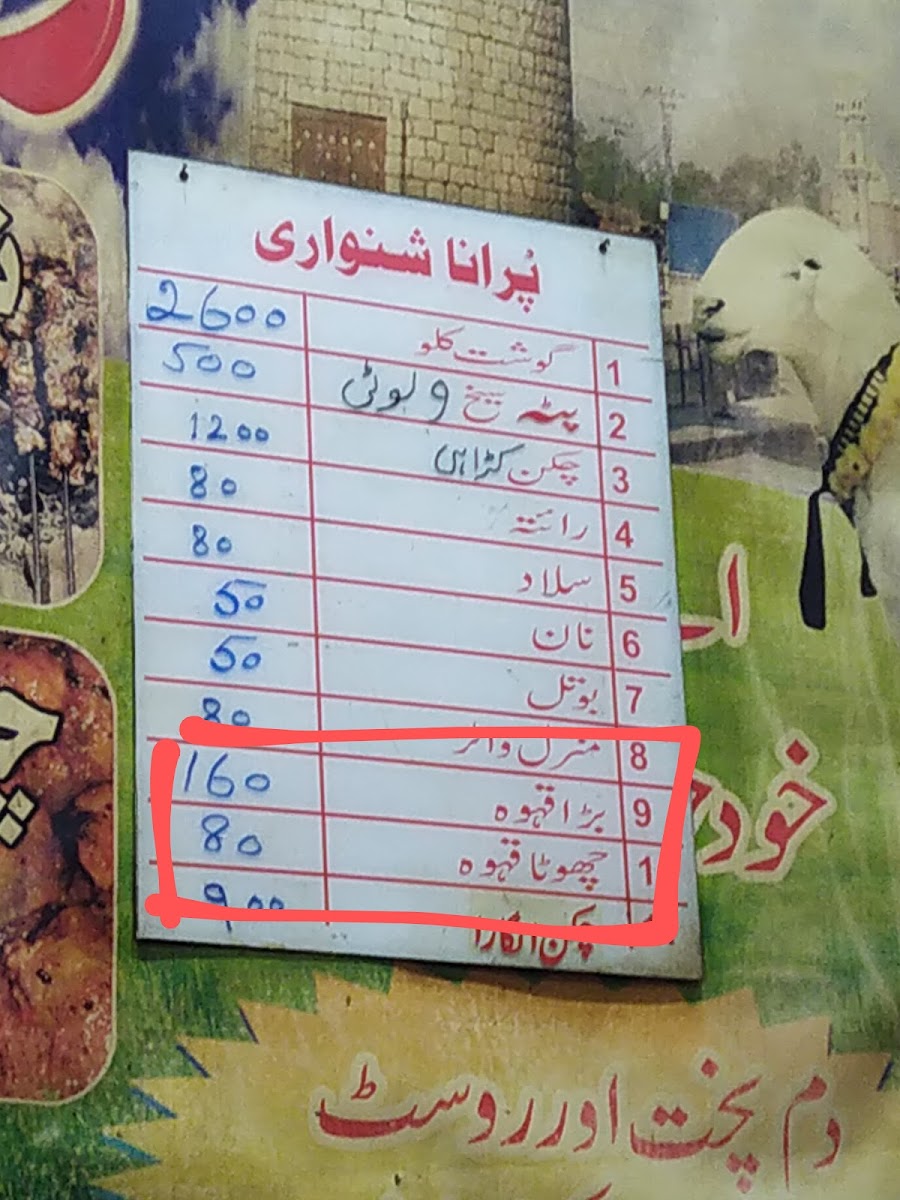 پُرانا شنواری
1 گوشت کلو 2600
2 پٹہ سیخ و بوٹی 500
3 چکن کڑاہی 1200
4 رائتہ 80
5 سلاد 80
6 نان 50
7 بوتل 50
8 منرل واٹر 80
9 بڑا قہوہ 160
1 چھوٹا قہوہ 80
چکن انگارا 900
دم پخت اور روسٹ